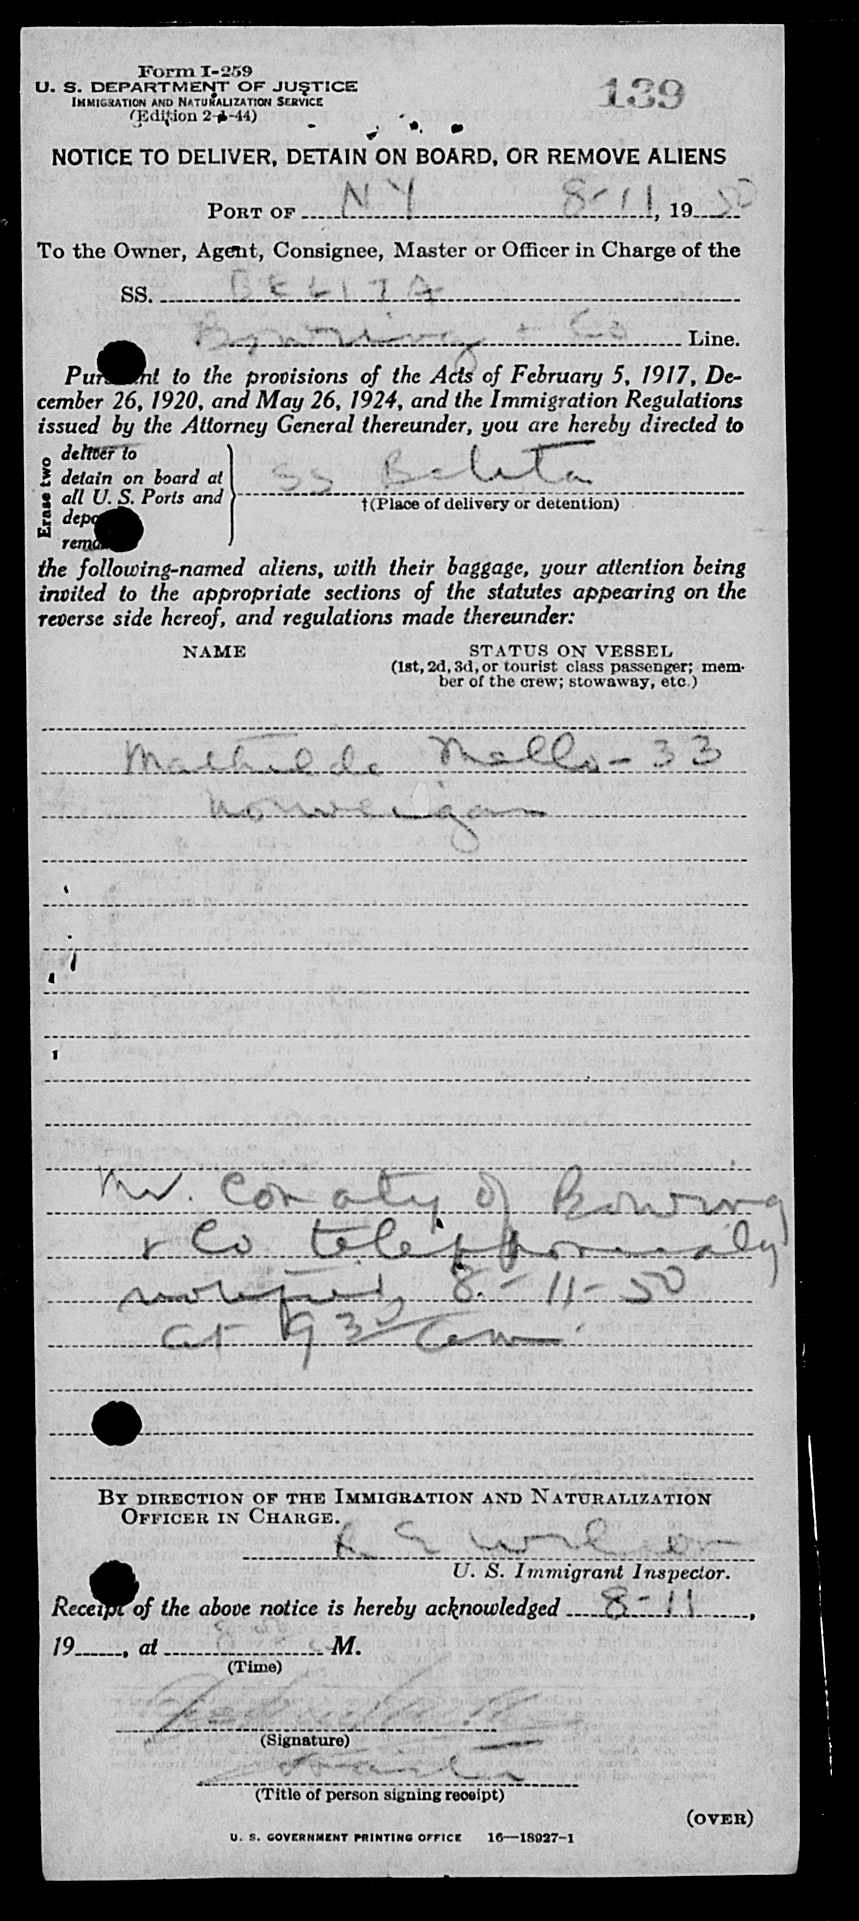 Form I-259
U. S. DEPARTMENT OF JUSTICE
IMMIGRATION AND NATURALIZATION SERVICE
(Edition 2-1-44)
139
NOTICE TO DELIVER, DETAIN ON BOARD, OR REMOVE ALIENS
PORT OF NY 8-11, 1950
To the Owner, Agent, Consignee, Master or Officer in Charge of the
SS. BELITA
Bowring + Co Line.
Pursuant to the provisions of the Acts of February 5, 1917, De-
cember 26, 1920, and May 26, 1924, and the Immigration Regulations
issued by the Attorney General thereunder, you are hereby directed to
Erase two
deliver to
detain on board at
all U. S. Ports and
SS Belita
†(Place of delivery or detention)
the following-named aliens, with their baggage, your attention being
invited to the appropriate sections of the statutes appearing on the
reverse side hereof, and regulations made thereunder:
NAME
STATUS ON VESSEL
(1st, 2d, 3d, or tourist class passenger; mem-
ber of the crew; stowaway, etc.)
Mathilde Mello - 33
Norweigan
Mr. Conaty of Bowring
+ Co telephonicaly
notified 8-11-50
at 9 30 am
BY DIRECTION OF THE IMMIGRATION AND NATURALIZATION
OFFICER IN CHARGE.
R E Wilson
U. S. Immigrant Inspector.
Receipt of the above notice is hereby acknowledged 8-11,
19, at M.
(Time)
(Signature)
(Title of person signing receipt)
(OVER)
U. S. GOVERNMENT PRINTING OFFICE 16—18927-1